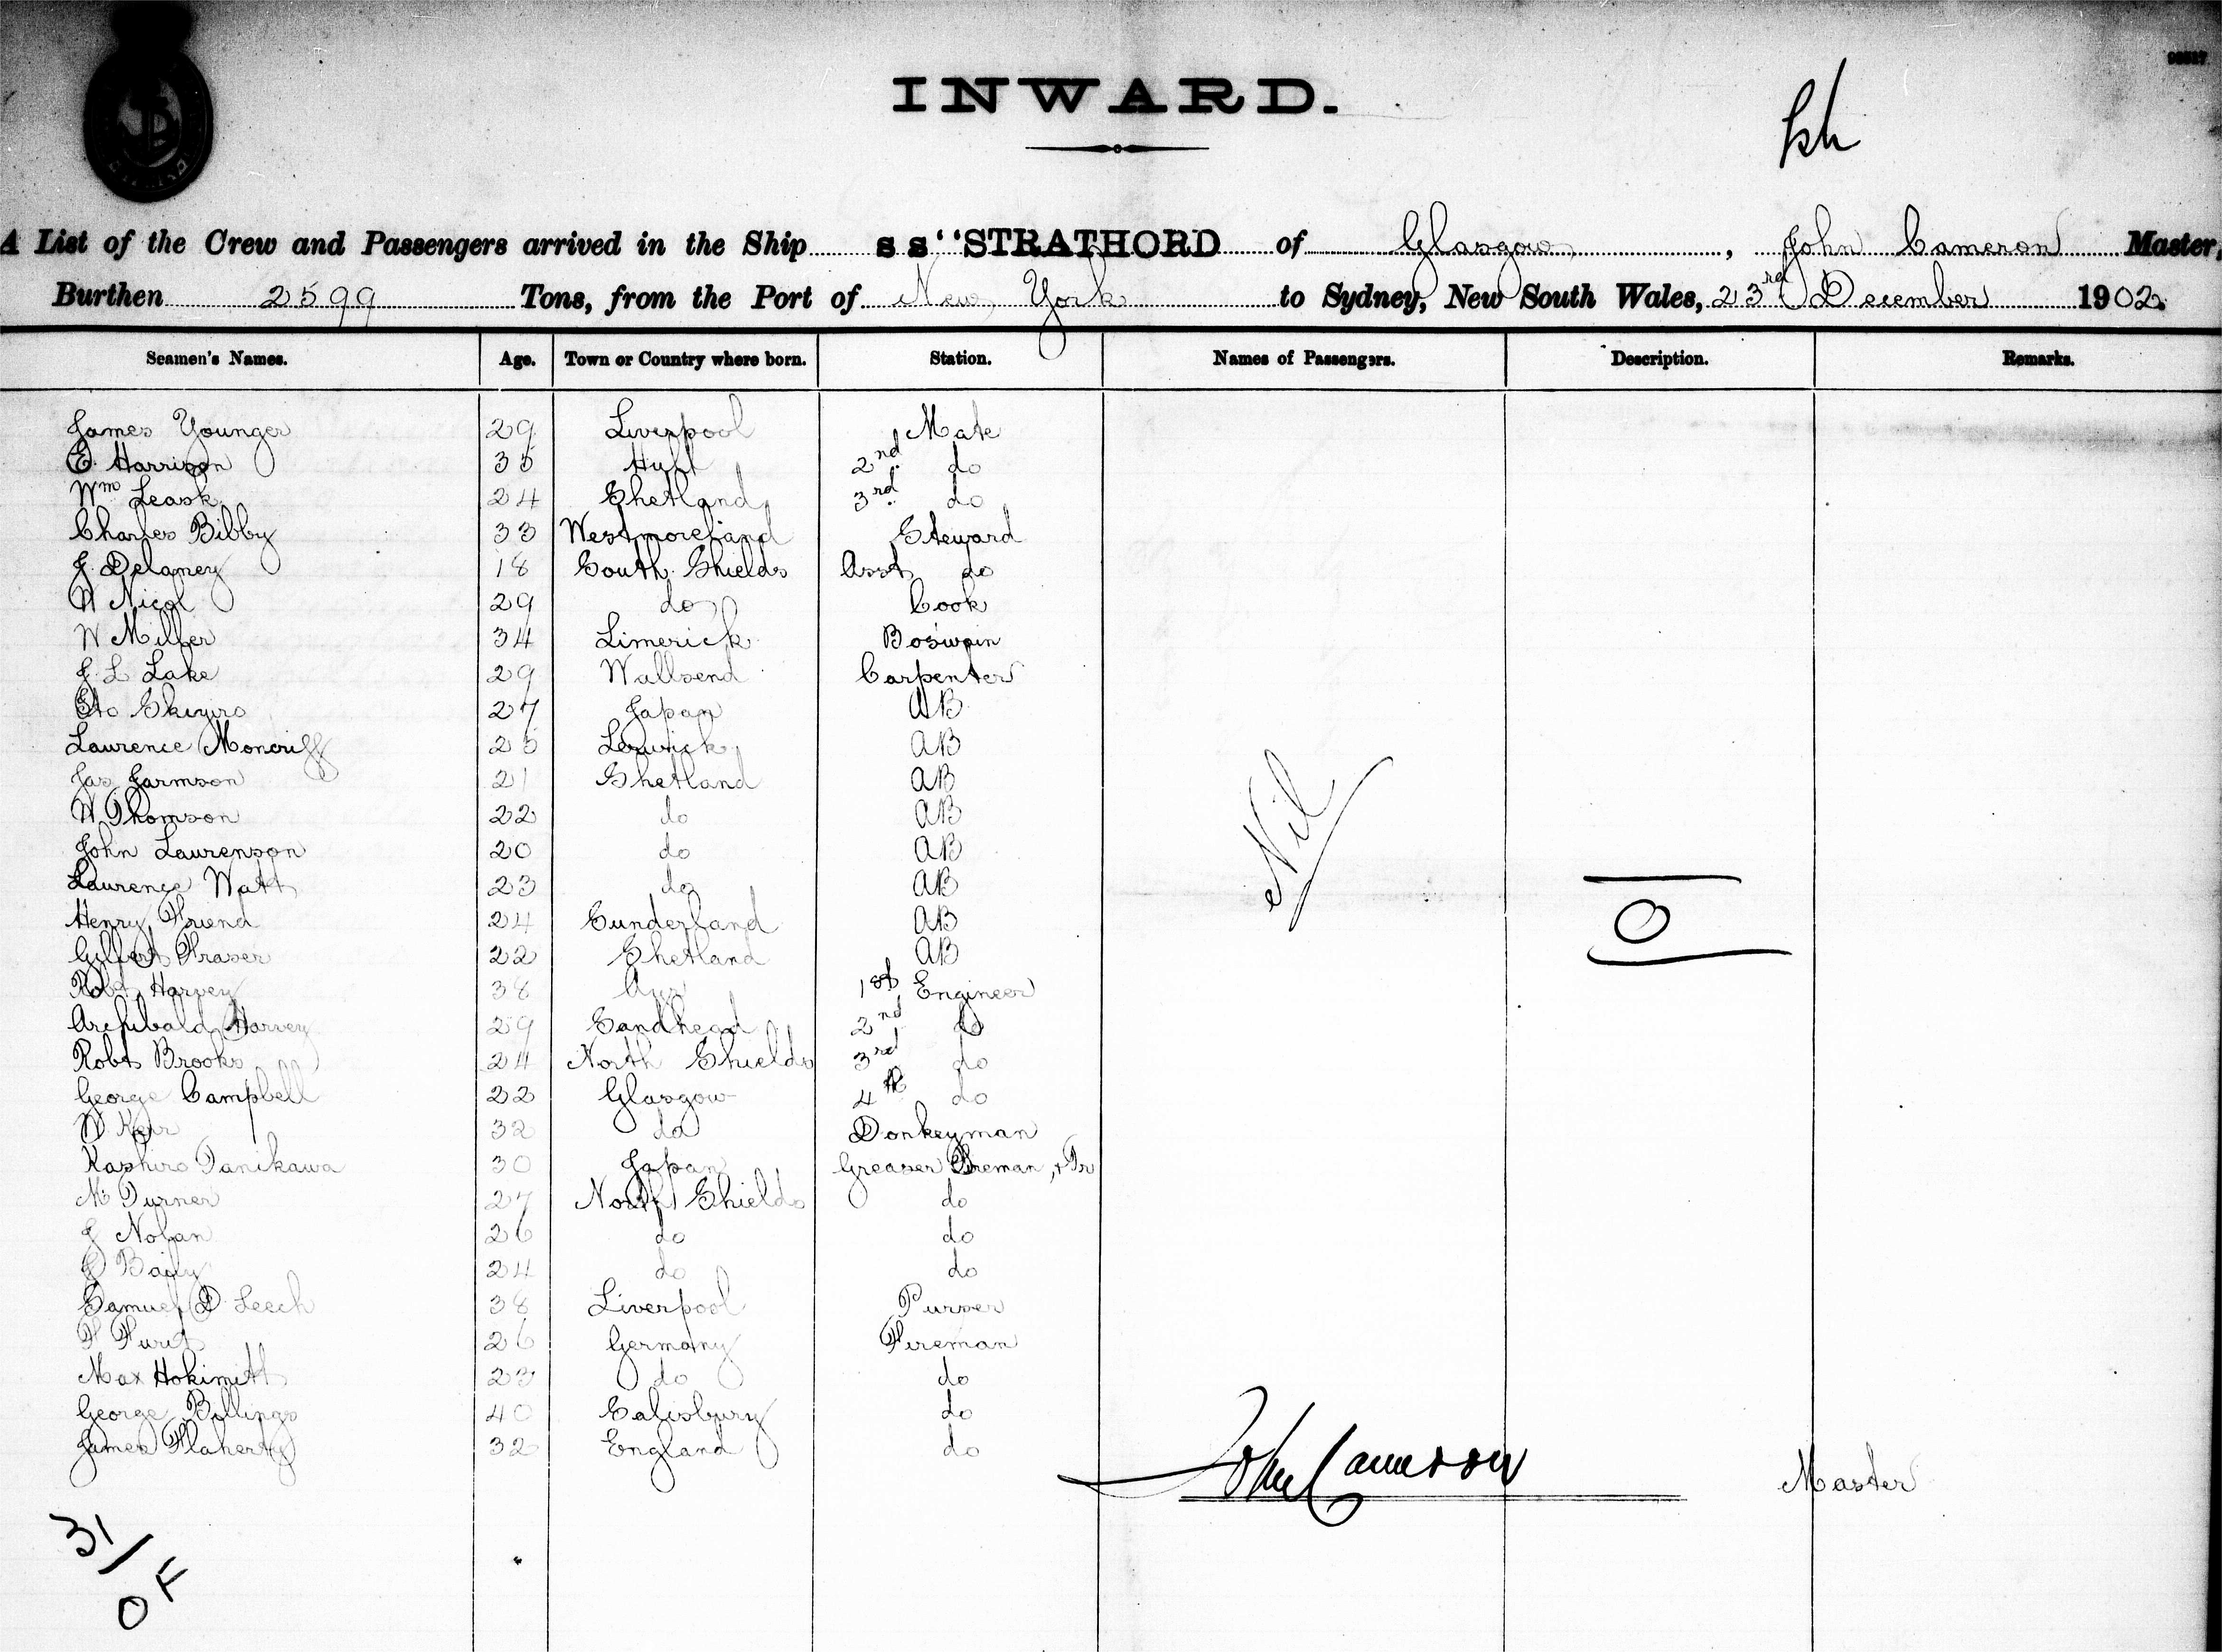 INWARD.
A List of the Crew and Passengers arrived in the Ship s s "STRATHORD of Glasgow, John Cameron Master,
Burthen 2599 Tons, from the Port of New York to Sydney, New South Wales, 23rd December 1902.
Seamen's Names. Age. Town or Country where born. Station. Names of Passengers. Description. Remarks.
James Younger 29 Liverpool Mate
E. Harrison 35 Hull 2nd do
Wm Leask 24 Shetland 3rd do
Charles Bibby 33 Westmoreland Steward
J. Delaney 18 South Shields Asst do
W Nicol 29 do Cook
W Miller 34 Limerick Boswain
J. L Lake 29 Wallsend Carpenter
Eto 27 Japan AB
Laurence Moncriff 25 Lerwick AB
Jas. Jarmson 21 Shetland AB
W Thomson 22 do AB
John Laurenson 20 do AB
Laurence Watt 23 do AB
Nil
Henry Friend 24 Sunderland AB
0
Gilbert Fraser 22 Shetland AB
Robt. Harvey 38 Ayr 1st Engineer
Archibald Harvey 29 Sandhead 2nd do
Robt Brooks 24 North Shields 3rd do
George Campbell 22 Glasgow 4th do
W. Kerr 32 do Donkeyman
Kashiro Tanikawa 30 Japan Greaser Fireman, & Tr
M Turner 27 North Shields do
J Nolan 26 do do
Baily 24 do do
Samuel D Leech 38 Liverpool Purser
26 Germany Fireman
Max Hokimitt 23 do do
George Billings 40 Salisbury do
James Flaherty 32 England do
John Cameron Master
31/
O F